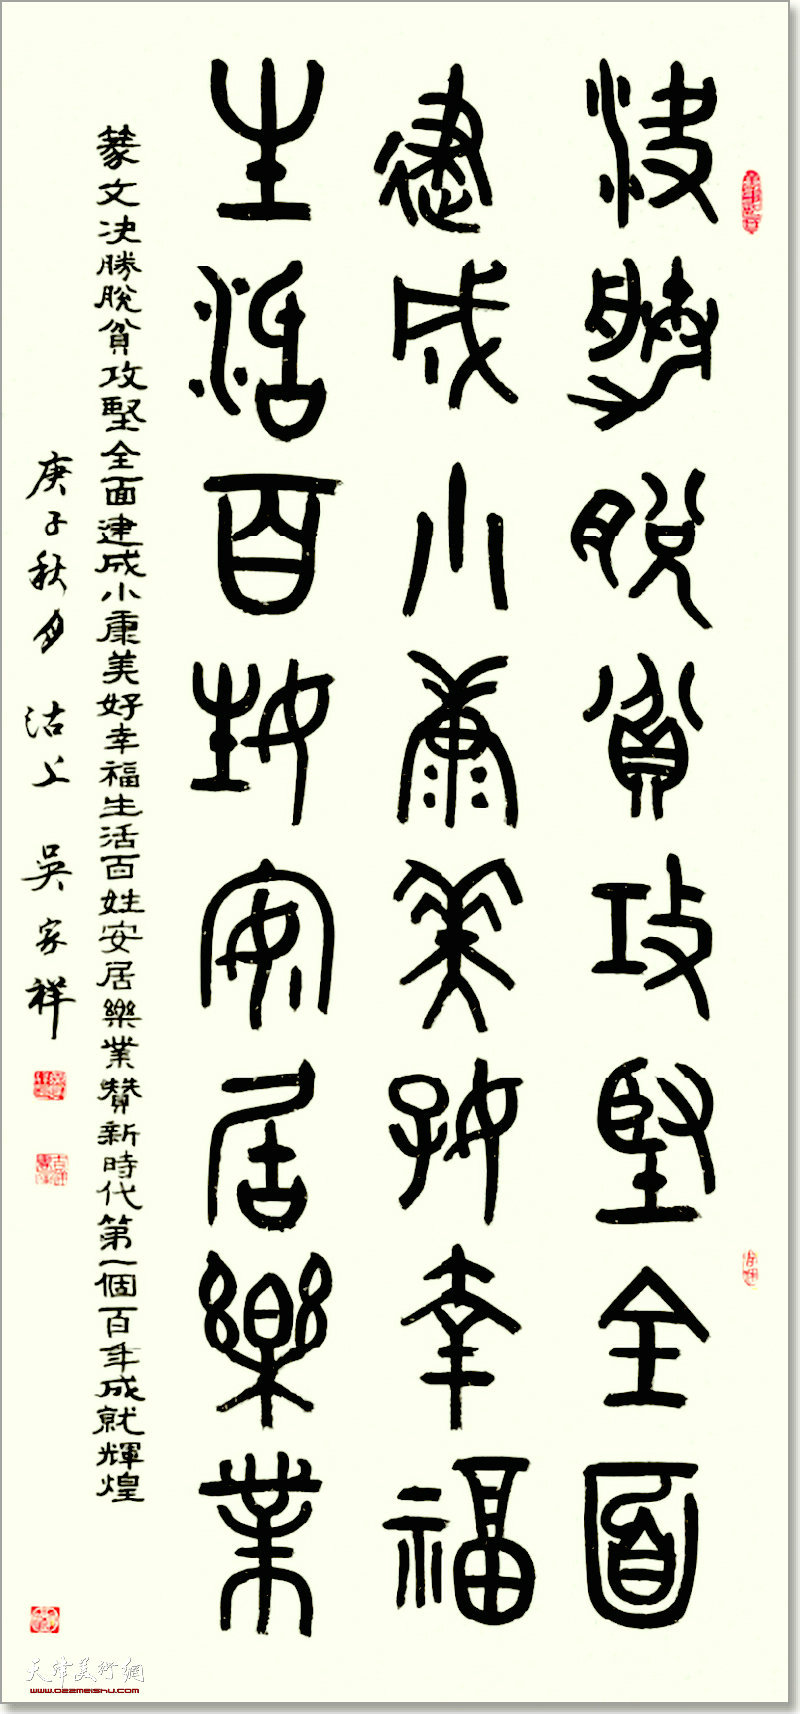 决勝脫貧攻堅全面
建成小康美好幸福
生活百姓安居樂業
篆文决勝脫貧攻堅全面建成小康美好幸福生活百姓安居樂業贊新時代第一個百年成就輝煌
庚子秋月 沽上 吳家祥
天津美术網
www.022meishu.com